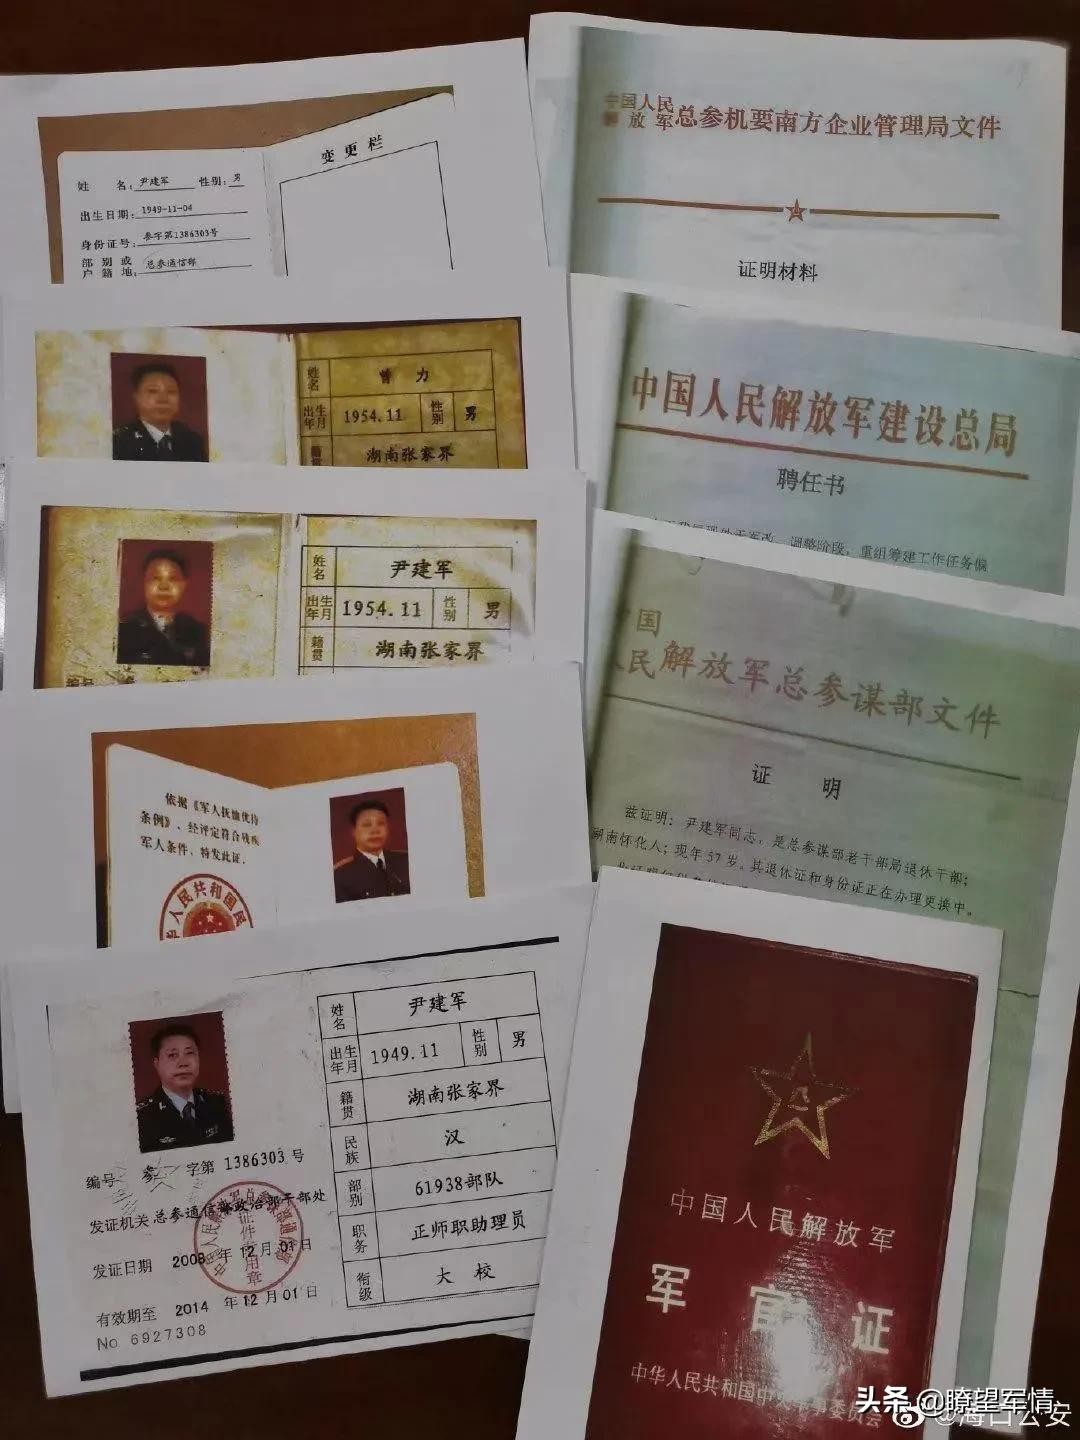 变更栏
姓 名：尹建军 性别：男
出生日期：1949-11-04
身份证号：参字第1386303号
部别或
户籍地：总参通信部
姓名 曾力
出生年月 1954.11 性别 男
籍贯 湖南张家界
姓名 尹建军
出生年月 1954.11 性别 男
籍贯 湖南张家界
编号
依据《军人抚恤优待
条例》、经评定符合残疾
军人条件，特发此证。
人民共和国民
姓名 尹建军
出生年月 1949.11 性别 男
籍贯 湖南张家界
民族 汉
部别 61938部队
职务 正师职助理员
衔级 大校
编号 参 字第 1386303 号
发证机关 总参通信部政治部干部处
发证日期 2008 年 12 月 01 日
有效期至 2014 年 12 月 01 日
No 6927308
证件专用章
中国人民
解放军总参机要南方企业管理局文件
证明材料
中国人民解放军建设总局
聘任书
调整阶段，重组筹建工作任务偏
中国
人民解放军总参谋部文件
证 明
兹证明：尹建军同志，是总参谋部老干部局退休干部；
湖南怀化人；现年57岁。其退休证和身份证正在办理更换中。
中国人民解放军
军官证
中华人民共和国中央军事委员会
头条 @瞭望军情
@海口公安